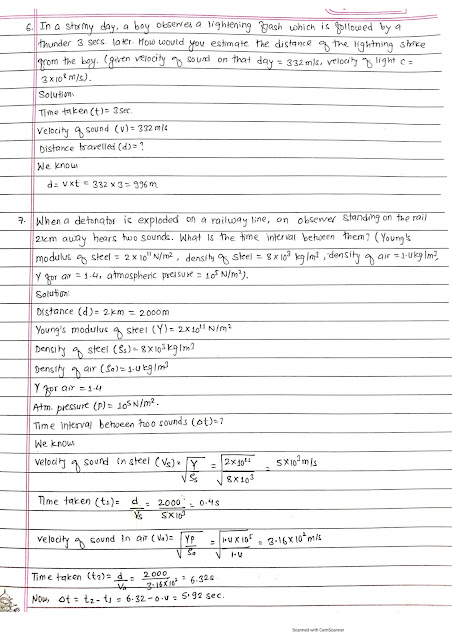 6. In a stormy day, a boy observes a lightening flash which is followed by a
thunder 3 secs later. How would you estimate the distance of the lightning strike
from the boy. (given velocity of sound on that day = 332m/s, velocity of light c =
3×10⁸ m/s).
Solution:
Time taken (t) = 3sec.
Velocity of sound (v) = 332 m/s
Distance travelled (d) = ?
We know
d = v×t = 332 × 3 = 996m
7. When a detonator is exploded on a railway line, an observer standing on the rail
2km away hears two sounds. What is the time interval between them? (Young's
modulus of steel = 2×10¹¹ N/m², density of steel = 8×10³ kg/m³, density of air = 1.4kg/m³,
γ for air = 1.4, atmospheric pressure = 10⁵ N/m²).
Solution:
Distance (d) = 2km = 2000m
Young's modulus of steel (Y) = 2×10¹¹ N/m²
Density of steel (ρs) = 8×10³ kg/m³
Density of air (ρa) = 1.4 kg/m³
γ for air = 1.4
Atm. pressure (P) = 10⁵ N/m².
Time interval between two sounds (Δt) = ?
We know
Velocity of sound in steel (Vs) = √(Y/ρs) = √(2×10¹¹/8×10³) = 5×10³ m/s
Time taken (t₁) = d/Vs = 2000/5×10³ = 0.4s
Velocity of sound in air (Va) = √(γP/ρa) = √(1.4×10⁵/1.4) = 3.16×10² m/s
Time taken (t₂) = d/Va = 2000/3.16×10² = 6.32s
Now, Δt = t₂ - t₁ = 6.32 - 0.4 = 5.92 sec.
Scanned with CamScanner